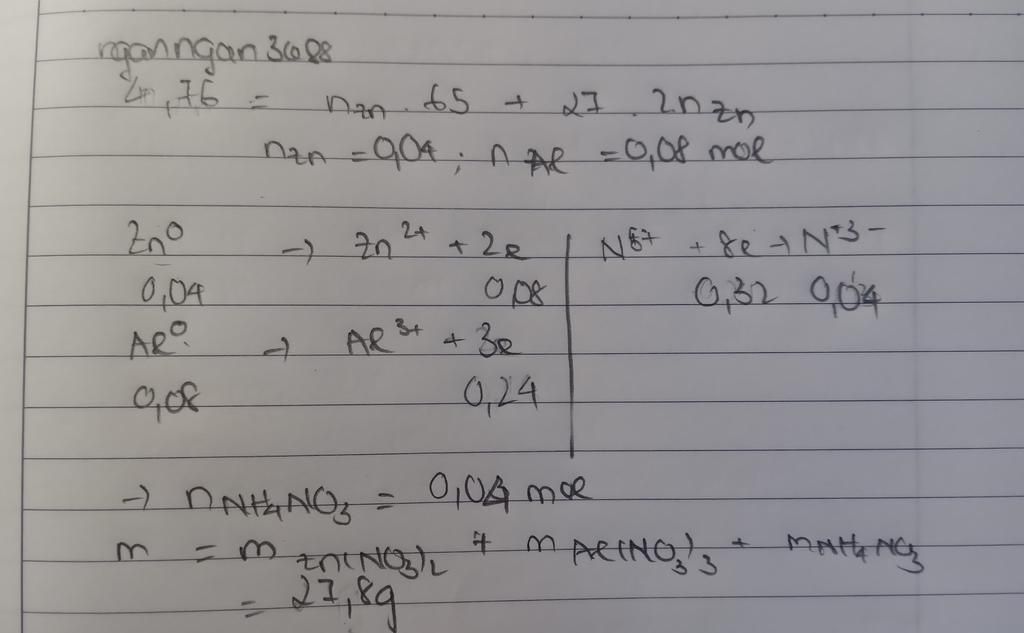 nganngan3688
4,76 = nZn . 65 + 27 . 2nZn
nZn = 0,04 ; nAl = 0,08 mol
Zn⁰ → Zn²⁺ + 2e | N⁵⁺ + 8e → N⁺³⁻
0,04 0,08 0,32 0,04
Al⁰ → Al³⁺ + 3e
0,08 0,24
→ nNH₄NO₃ = 0,04 mol
m = m Zn(NO₃)₂ + m Al(NO₃)₃ + mNH₄NO₃
= 27,8g